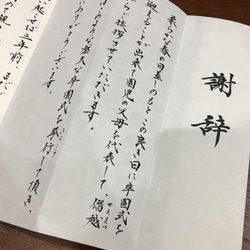 謝辞
柔らかな春の日差しのもとこの良き日に卒園式を
迎えることが出来て園児の父母を代表して、僭越
せんえつ
ながら一言挨拶させていただきます。
盛大な卒園式を挙行して頂き、
三年前、まだ